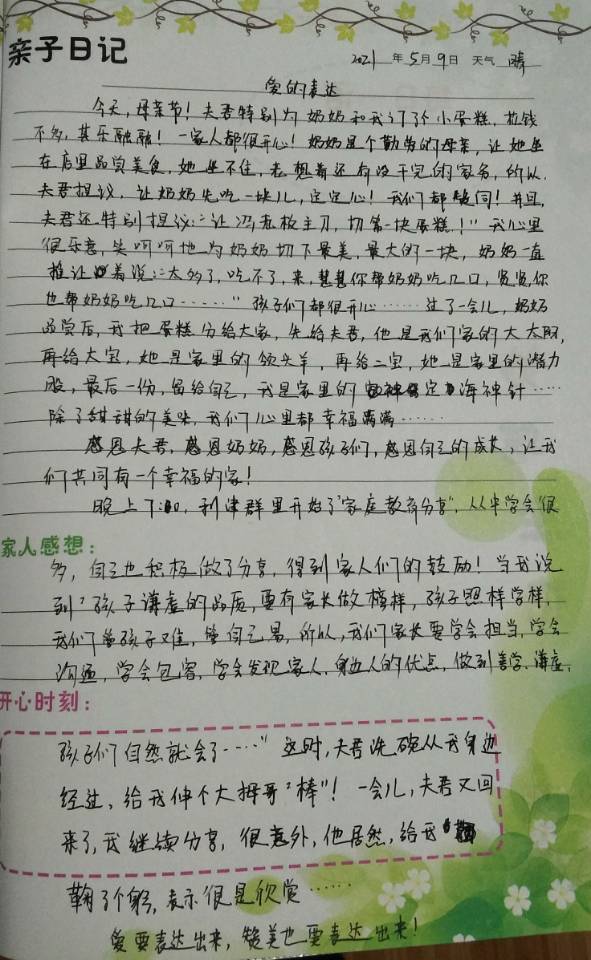 亲子日记
2021 年 5 月 9 日 天气 晴
爱的表达
今天，母亲节！夫君特别为奶奶和我订了个小蛋糕，花钱
不多，其乐融融！一家人都很开心！奶奶是个勤劳的母亲，让她坐
在店里品赏美食，她坐不住，老想着还有没干完的家务，所以，
夫君提议，让奶奶先吃一块儿，定定心！我们都赞同！并且，
夫君还特别提议：“让冯老板主刀，切第一块蛋糕！”我心里
很乐意，笑呵呵地为奶奶切下最美，最大的一块，奶奶一直
推让着说：“太多了，吃不了，来，慧慧你帮奶奶吃几口，贤贤，你
也帮奶奶吃几口……”孩子们都很开心……过了一会儿，奶奶
品赏后，我把蛋糕分给大家，先给夫君，他是我们家的大太阳，
再给大宝，她是家里的领头羊，再给二宝，她是家里的潜力
股，最后一份，留给自己，我是家里的定海神针……
除了甜甜的美味，我们心里都幸福满满……
感恩夫君，感恩奶奶，感恩孩子们，感恩自己的成长，让我
们共同有一个幸福的家！
晚上7:00，利津群里开始了“家庭教育分享”，从中学会很
家人感想：
多，自己也积极做了分享，得到家人们的鼓励！当我说
到“孩子谦虚的品质，要有家长做榜样，孩子照样学样，
我们管孩子又难，管自己易，所以，我们家长要学会担当，学会
沟通，学会包容，学会发现家人，身边人的优点，做到善学、谦虚，
开心时刻：
孩子们自然就会了……”这时，夫君洗碗从我身边
经过，给我伸个大拇哥“棒”！一会儿，夫君又回
来了，我继续分享，很意外，他居然，给我
鞠了个躬，表示很是欣赏……
爱要表达出来，赞美也要表达出来！